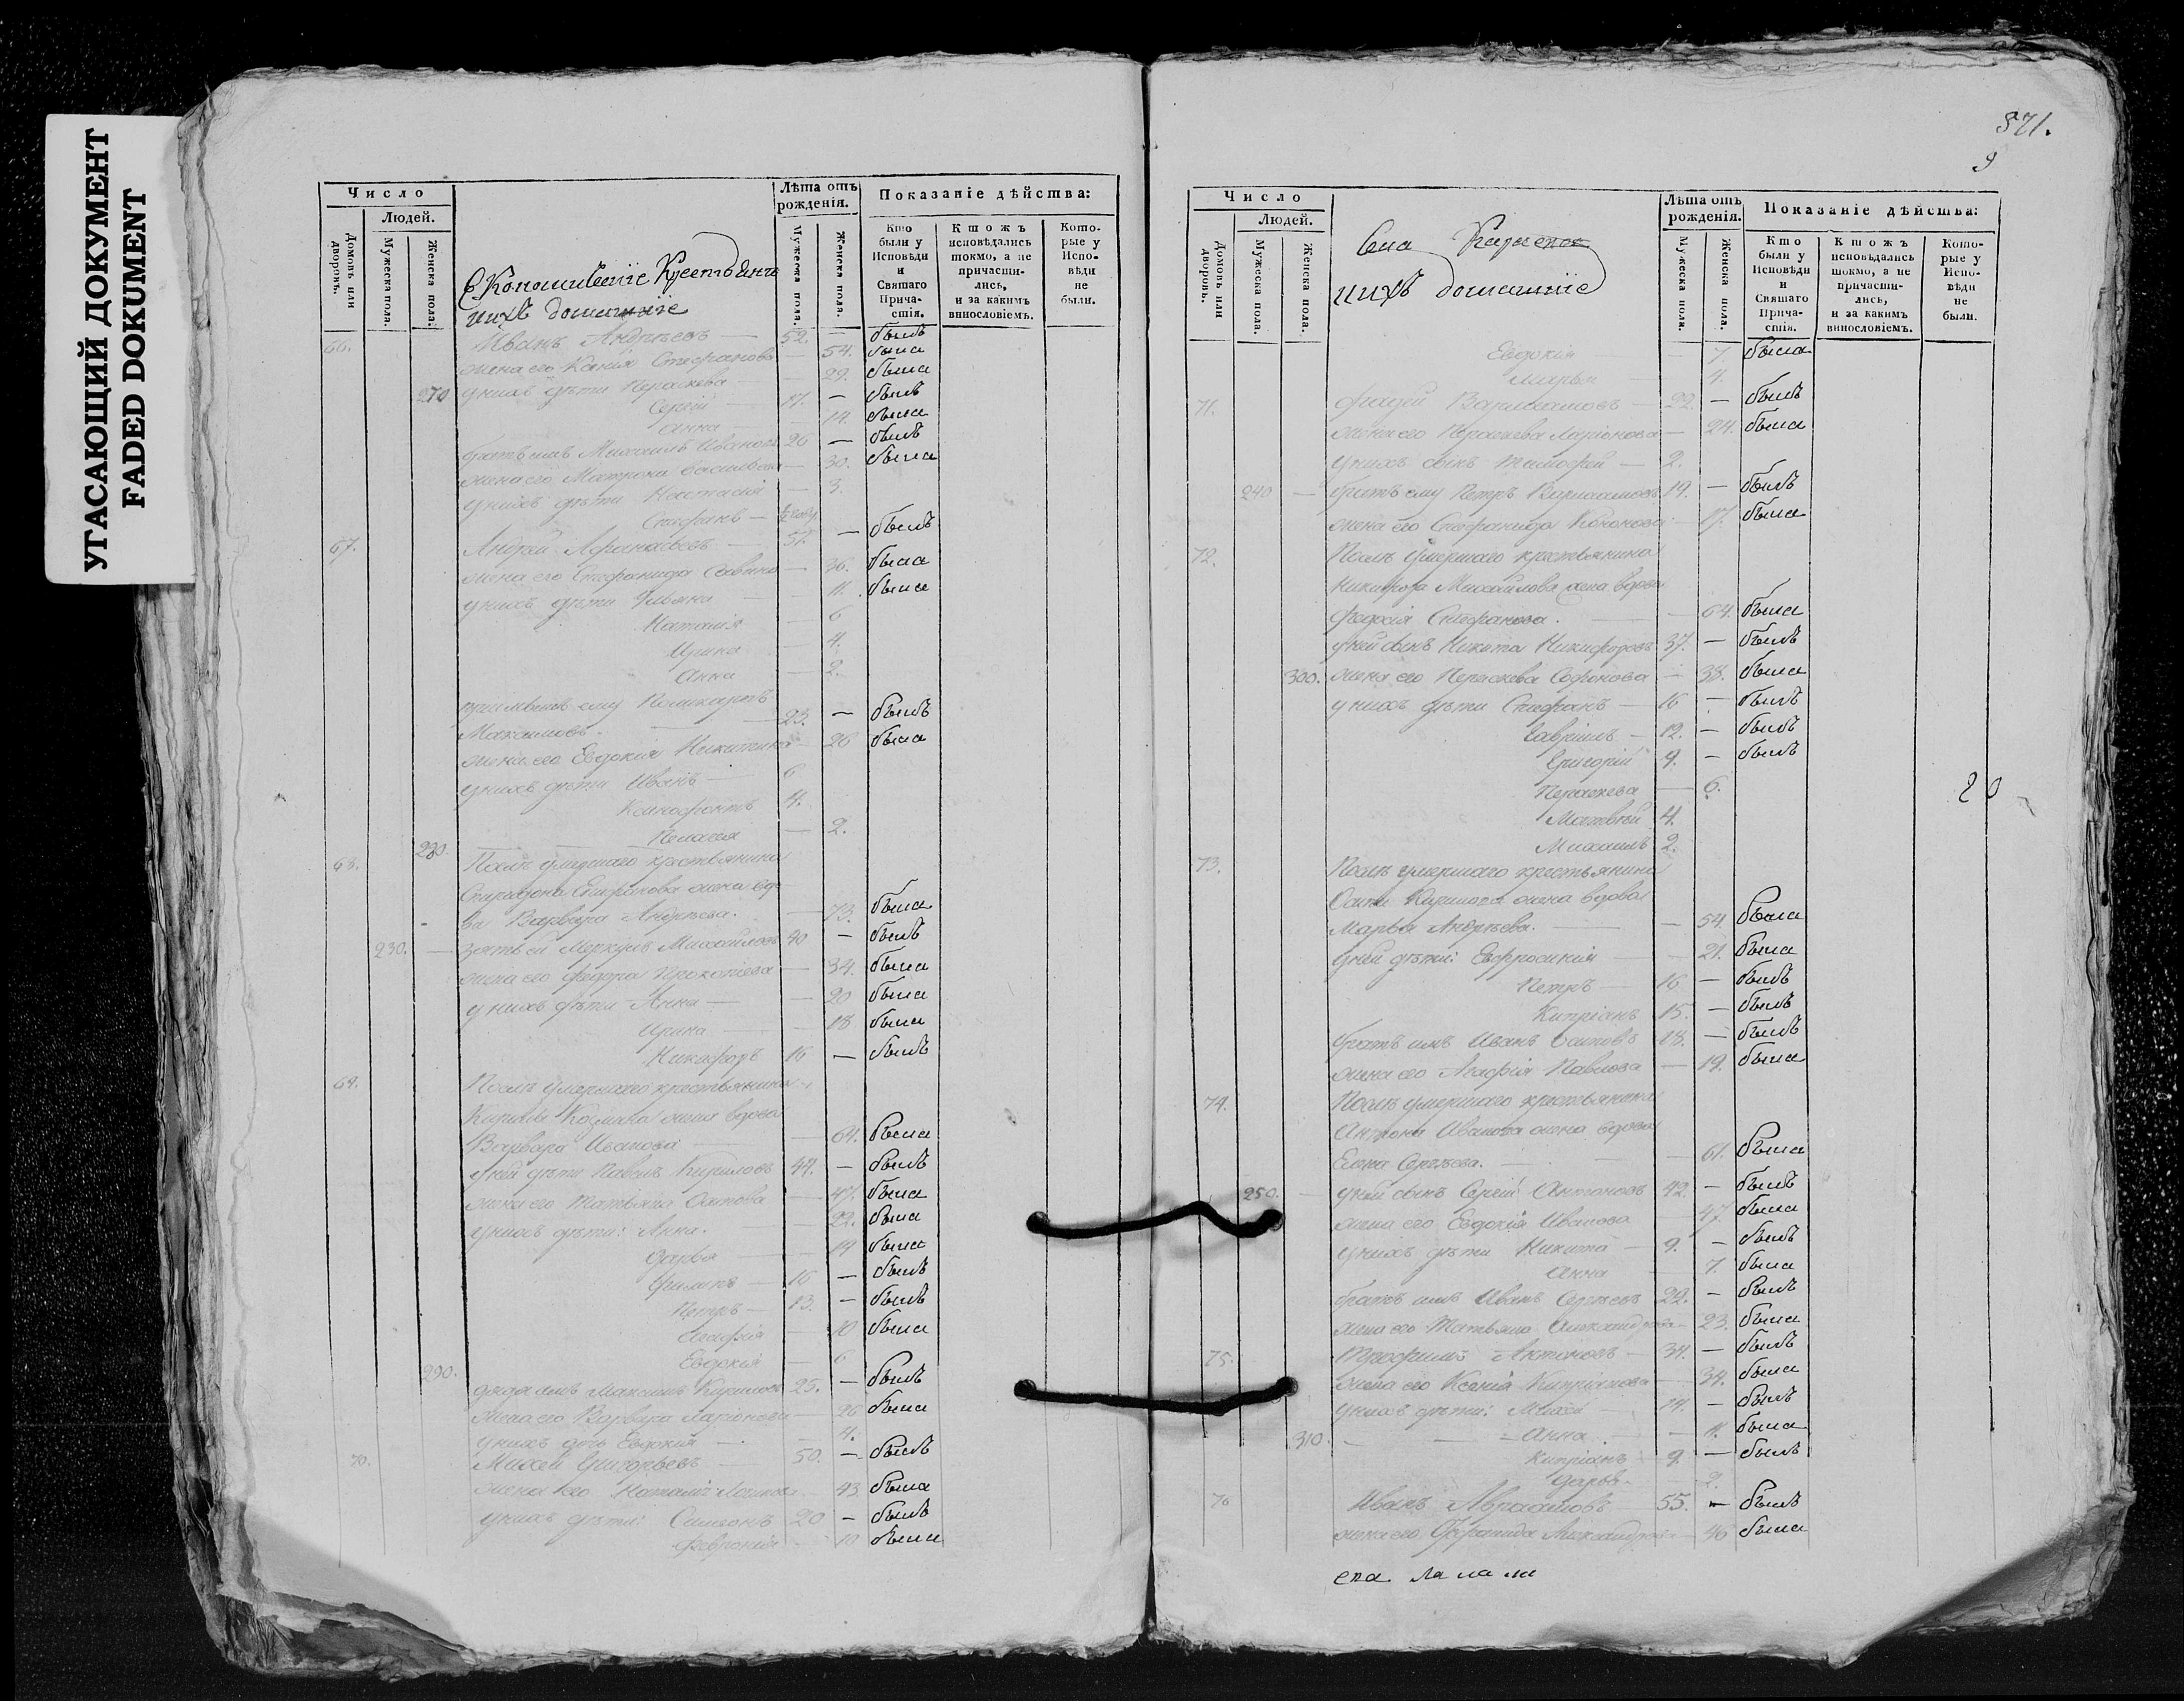 УГАСАЮЩИЙ ДОКУМЕНТ
FADED DOKUMENT
Число
Людей.
Домовъ или дворовъ.
Мужеска пола.
Женска пола.
ихъ домашніе
Лѣта отъ рожденія.
Мужеска пола.
Женска пола.
Показаніе дѣйства:
Кто были у Исповѣди и Святаго Прича-стія.
Ктожъ исповѣдались токмо, а не причасти-лись, и за какимъ винословіемъ.
Кото-рые у Испо-вѣди не были.
66. Иванъ Андреевъ — 52. — былъ
жена его Стефанова — 54. была
270 у нихъ дѣти Параскева — 29. была
Сергій — 17. — былъ
Анна — 14. была
Михаилъ Ивановъ 26 — былъ
жена его Матрона Васильева — 30. была
у нихъ дѣти Настасія — 3.
Стефанъ —
67. Андрей Афанасьевъ — 51. — былъ
жена его Стефанида — 36. была
у нихъ дѣти Ульяна — 11. была
Наталія — 6
Ирина — 4.
Анна — 2.
ему Поликарпъ
Максимовъ. — 23. — былъ
жена его Евдокія Никитина — 26 была
у нихъ дѣти Иванъ — 6
Ксенофонтъ 4.
280. Пелагея — 2.
68. Послѣ умершаго крестьянина
Спиридона Стефанова жена вдо-
ва Варвара Андреева. — 73. была
230. — зять ей Меркулъ Михайловъ 40 — былъ
жена его Федора Прокопіева — 34. была
у нихъ дѣти Анна — 20 была
Ирина — 18 была
Никифоръ 16 — былъ
69. Послѣ умершаго крестьянина
Кирилы Козмина жена вдова
Варвара Иванова — 64. была
у ней дѣти Павелъ Кириловъ 44. — былъ
жена его Татьяна Осипова — 47. была
у нихъ дѣти: Анна. — 22. была
Дарья — 19 была
Филипъ — 16 — былъ
Петръ — 13. — былъ
Агафія — 10 была
290. Евдокія — 6
дядя имъ Максимъ Кириловъ 25. — былъ
жена его Варвара Ларіонова — 26 была
у нихъ дочь Евдокія — 4.
70. Михей Григорьевъ — 50. — былъ
жена его Наталія — 43 была
у нихъ дѣти: Симеонъ 20 — былъ
Февронія — 10 была
871.
9
Число
Людей.
Домовъ или дворовъ.
Мужеска пола.
Женска пола.
ихъ домашніе
Лѣта отъ рожденія.
Мужеска пола.
Женска пола.
Показаніе дѣйства:
Кто были у Исповѣди и Святаго Прича-стія.
Ктожъ исповѣдались токмо, а не причасти-лись, и за какимъ винословіемъ.
Кото-рые у Испо-вѣди не были.
Евдокія — 7. была
Марья — 4.
71. Фадей Варлаамовъ — 22. — былъ
жена его Параскева Ларіонова — 24. была
у нихъ сынъ Тимофей — 2.
240 — братъ ему Петръ Варлаамовъ 19. — былъ
жена его Стефанида Кононова — 17. была
72. Послѣ умершаго крестьянина
Никифора Михайлова жена вдова
Федосія Стефанова. — 64. была
у ней сынъ Никита Никифоровъ 37. — былъ
300. жена его Параскева Софонова — 38. была
у нихъ дѣти Стефанъ — 16 — былъ
Гавріилъ — 12. — былъ
Григорій 9. — былъ
Параскева — 6.
20
Матвѣй 4.
Михаилъ 2.
73. Послѣ умершаго крестьянина
Осипа Кирилова жена вдова
Марья Андреева. — 54. была
у ней дѣти: Евфросинія — 21. была
Петръ — 16 — былъ
Кипріанъ 15. — былъ
братъ имъ Иванъ Осиповъ 18. — былъ
жена его Агафія Павлова — 19. была
74. Послѣ умершаго крестьянина
Антона Иванова жена вдова
Елена Сергѣева. — 61. была
250. у ней сынъ Сергій Антоновъ 42. — былъ
жена его Евдокія Иванова — 47. была
у нихъ дѣти Никита — 9. — былъ
Анна — 7. была
братъ имъ Иванъ Сергѣевъ 22. — былъ
жена его Татьяна Александрова — 23. была
75. Трофимъ Антоновъ — 34. — былъ
жена его Ксенія Кипріанова — 34. была
у нихъ дѣти: Михей 14. — былъ
310. — Анна — 11. была
Кипріанъ 9. — былъ
Дарья — 2.
76 Иванъ Авраамовъ 55. — былъ
жена его Александрова — 46 была